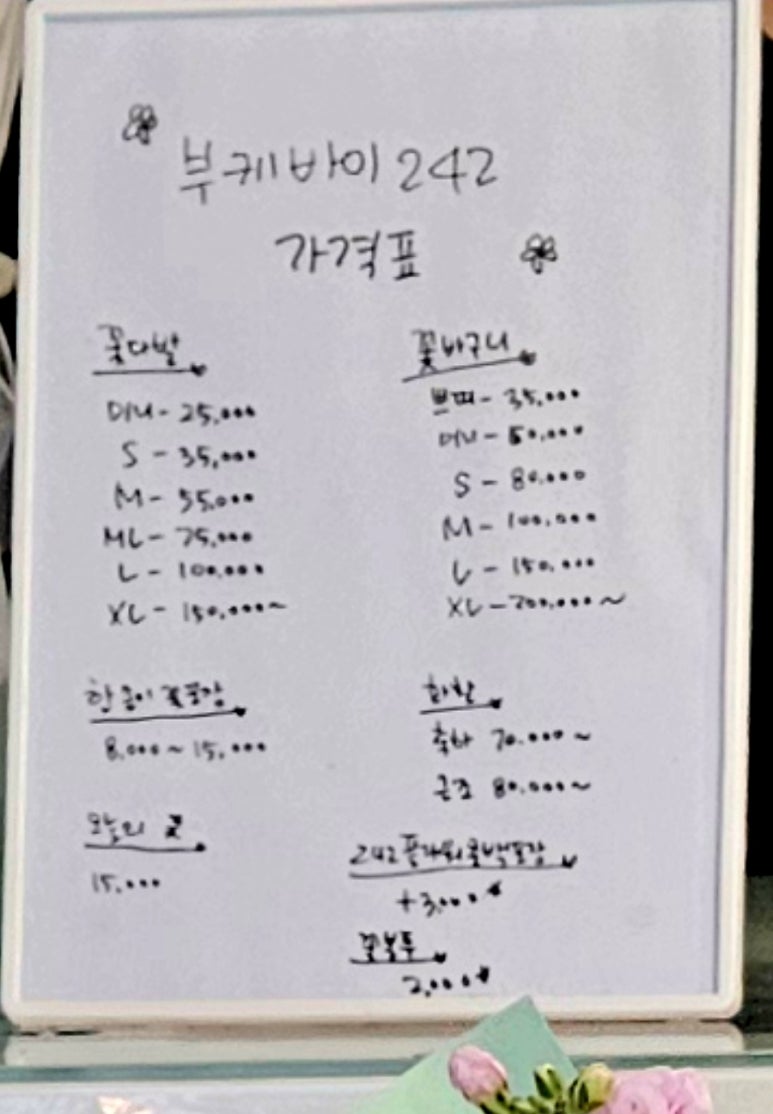 부케바이 242
가격표
꽃다발
미니 - 25,000
S - 35,000
M - 55,000
ML - 75,000
L - 100,000
XL - 150,000~
한송이 꽃포장
8,000 ~ 15,000
오늘의 꽃
15,000
꽃바구니
쁘띠 - 35,000
미니 - 50,000
S - 80,000
M - 100,000
L - 150,000
XL - 200,000 ~
화환
축하 70,000 ~
근조 80,000 ~
242 플라워 쇼핑백포장
+3,000
꽃봉투
2,000